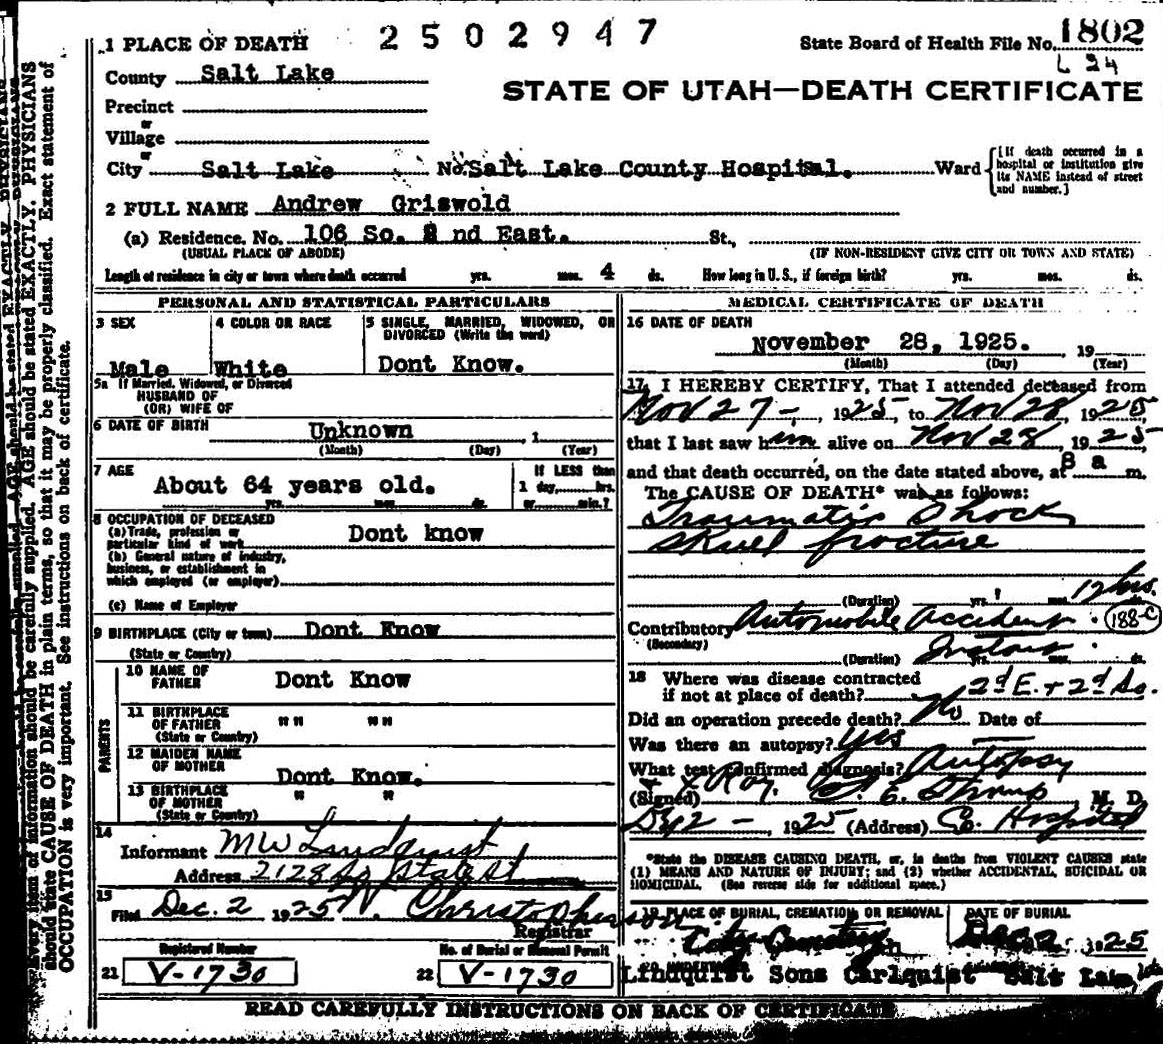 1 PLACE OF DEATH 2502947 State Board of Health File No. 1802
L 24
County Salt Lake
STATE OF UTAH—DEATH CERTIFICATE
Precinct
or
Village
or
City Salt Lake No. Salt Lake County Hospital. Ward
[If death occurred in a hospital or institution give its NAME instead of street and number.]
2 FULL NAME Andrew Griswold
(a) Residence. No. 106 So. 2 nd East. St.,
(USUAL PLACE OF ABODE) (IF NON-RESIDENT GIVE CITY OR TOWN AND STATE)
Length of residence in city or town where death occurred yrs. mos. 4 ds. How long in U. S., if foreign birth? yrs. mos. ds.
PERSONAL AND STATISTICAL PARTICULARS
3 SEX 4 COLOR OR RACE 5 SINGLE, MARRIED, WIDOWED, OR DIVORCED (Write the word)
Male White Dont Know.
5a If Married, Widowed, or Divorced
HUSBAND OF
(OR) WIFE OF
6 DATE OF BIRTH Unknown , 1
(Month) (Day) (Year)
7 AGE If LESS than
About 64 years old. 1 day, hrs.
yrs. mos. ds. or min.?
8 OCCUPATION OF DECEASED
(a) Trade, profession or
particular kind of work Dont know
(b) General nature of industry,
business, or establishment in
which employed (or employer)
(c) Name of Employer
9 BIRTHPLACE (City or town) Dont Know
(State or Country)
PARENTS
10 NAME OF
FATHER Dont Know
11 BIRTHPLACE
OF FATHER " " " "
(State or Country)
12 MAIDEN NAME
OF MOTHER Dont Know.
13 BIRTHPLACE
OF MOTHER " "
(State or Country)
14
Informant M W Lindquist
Address 2128 So State St
15
Filed Dec. 2 1925 Christopherson
Registrar
Registered Number No. of Burial or Removal Permit
21 V-1730 22 V-1730
MEDICAL CERTIFICATE OF DEATH
16 DATE OF DEATH
November 28, 1925. , 19
(Month) (Day) (Year)
17 I HEREBY CERTIFY, That I attended deceased from
Nov 27 - , 1925 to Nov 28, 1925
that I last saw him alive on Nov 28 , 1925
and that death occurred, on the date stated above, at 8 a m.
The CAUSE OF DEATH* was as follows:
Traumatic Shock
Skull fracture
(Duration) yrs. mos. 12 hrs. ds.
Contributory Automobile Accident. 188-C
(Secondary)
(Duration) yrs. mos. ds.
18 Where was disease contracted
if not at place of death? 2d E. + 2d So.
Did an operation precede death? No Date of
Was there an autopsy? Yes
What test confirmed diagnosis? Autopsy
+ X Ray.
(Signed) M. D.
1925 (Address) Co. Hospital
*State the DISEASE CAUSING DEATH, or, in deaths from VIOLENT CAUSES state
(1) MEANS AND NATURE OF INJURY; and (2) whether ACCIDENTAL, SUICIDAL OR
HOMICIDAL. (See reverse side for additional space.)
19 PLACE OF BURIAL, CREMATION OR REMOVAL DATE OF BURIAL
City Cemetery Dec 2 1925
Lindquist Sons Carlquist Salt Lake
READ CAREFULLY INSTRUCTIONS ON BACK OF CERTIFICATE
Every item of information should be carefully supplied. AGE should be stated EXACTLY. PHYSICIANS
should state CAUSE OF DEATH in plain terms, so that it may be properly classified. Exact statement of
OCCUPATION is very important. See instructions on back of certificate.